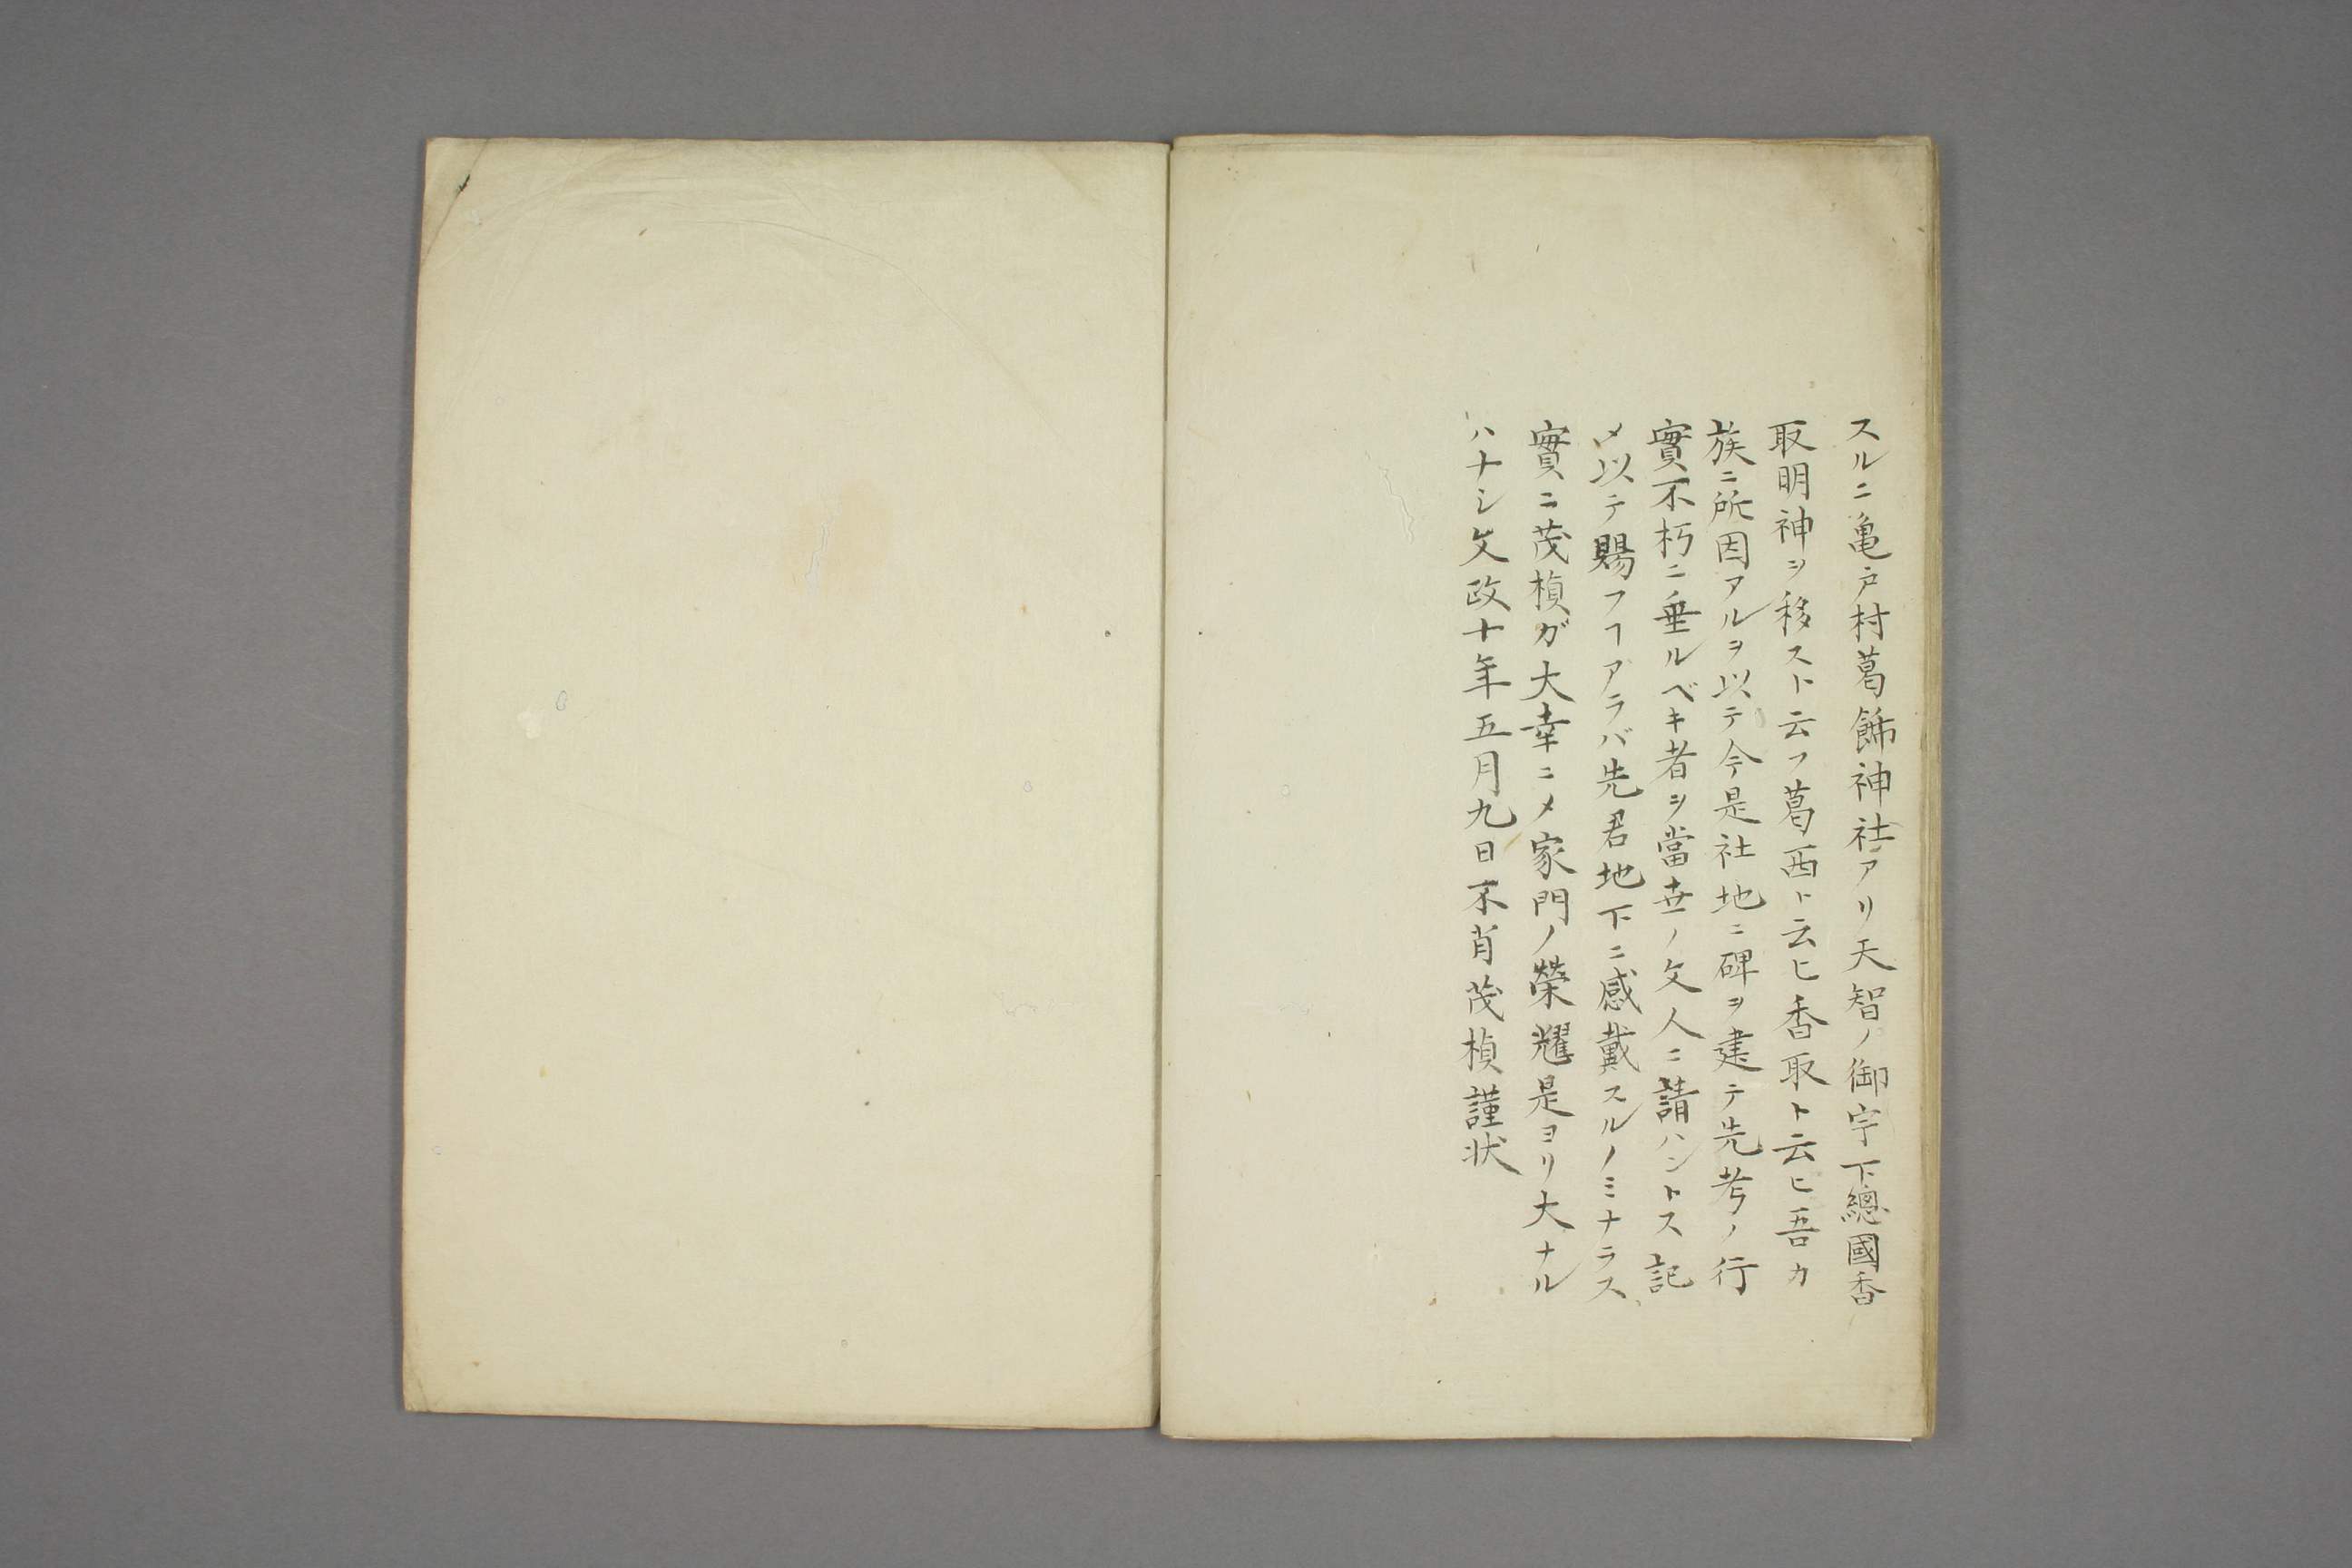 スルニ亀戸村葛餝神社アリ天智ノ御宇下總國香
取明神ヲ移スト云フ葛西ト云ヒ香取ト云ヒ吾カ
族ニ所因アルヲ以テ今是社地ニ碑ヲ建テ先考ノ行
實不朽ニ垂ルベキ者ヲ當世ノ文人ニ請ハントス記
〆以テ賜フヿアラバ先君地下ニ感戴スルノミナラス
實ニ茂楨ガ大幸ニ〆家門ノ榮耀是ヨリ大ナル
ハナシ文政十年五月九日不肖茂楨謹状